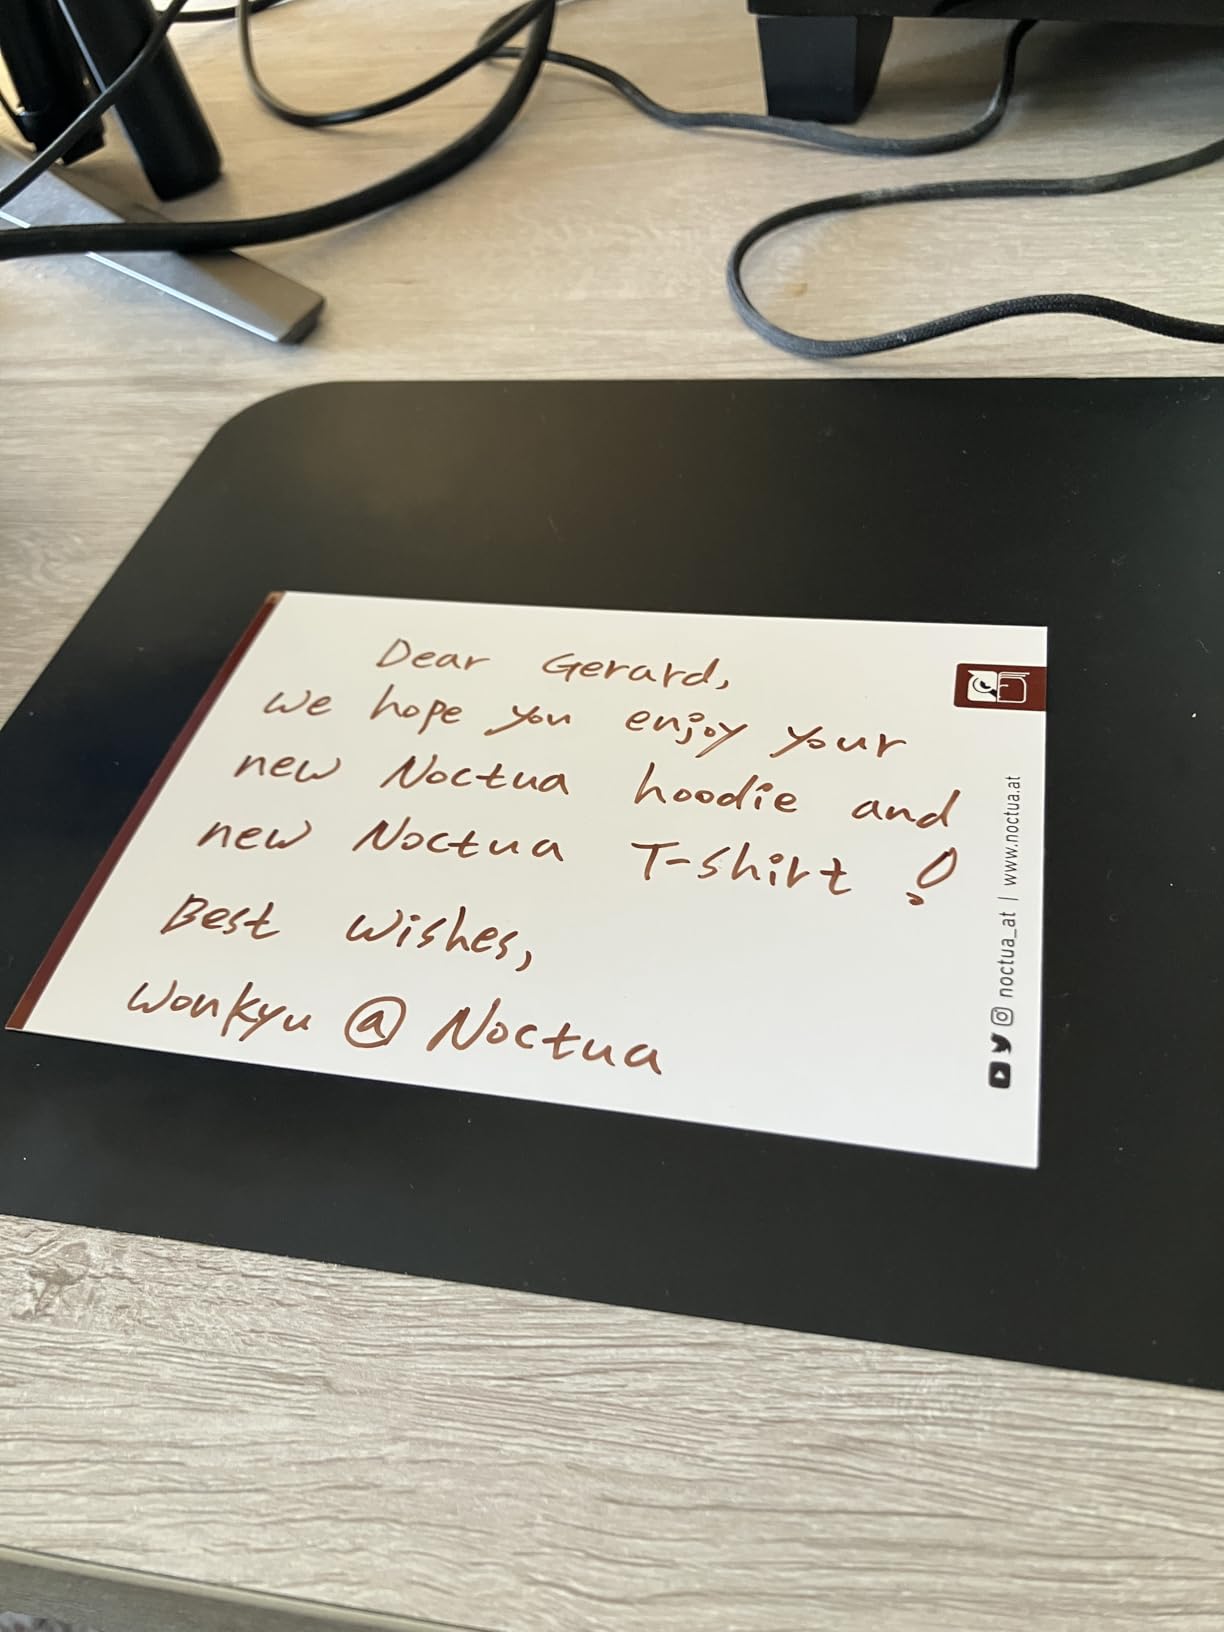 Dear Gerard,
We hope you enjoy your
new Noctua hoodie and
new Noctua T-shirt!
Best Wishes,
Wonkyu @ Noctua
noctua_at | www.noctua.at